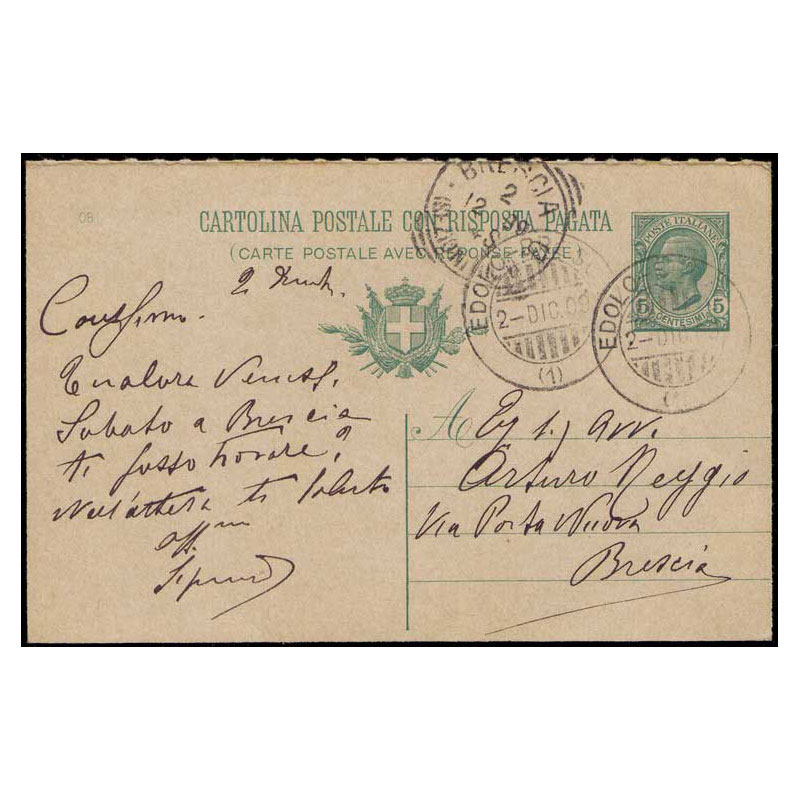 08.
CARTOLINA POSTALE CON RISPOSTA PAGATA
(CARTE POSTALE AVEC RÉPONSE PAYÉE)
POSTE ITALIANE
5 CENTESIMI 5
BRESCIA
2
12
EDOLO
2-DIC.09
(1)
EDOLO
2-DIC
2
Venissi
Sabato a Brescia
ti posso trovare?
Nell'attesa ti saluto
aff.mo
A Eg. Avv.
Arturo Reggio
Via Porta Nuova
Brescia